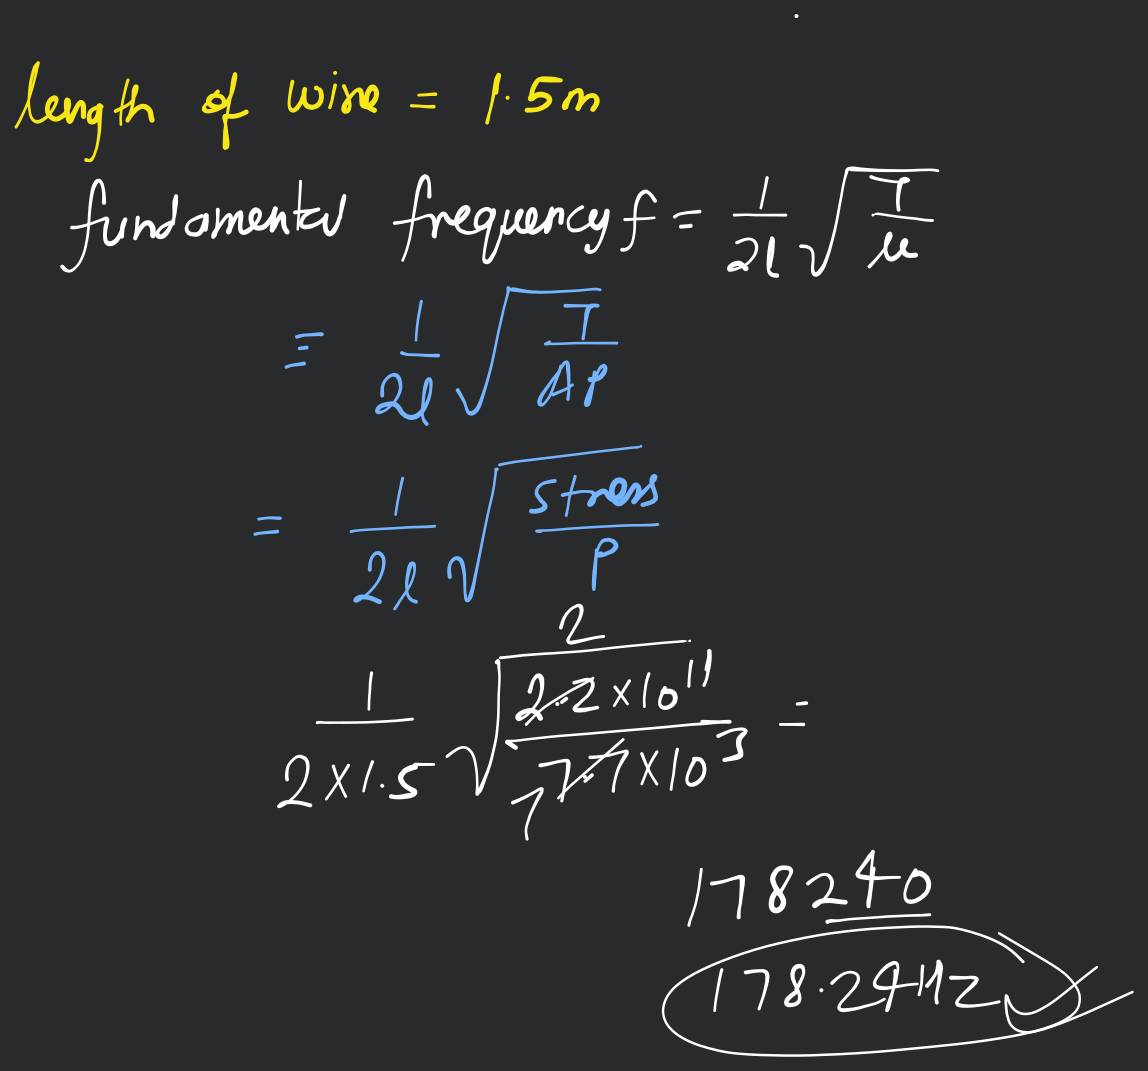 length of wire = 1.5m
fundamental frequency f = 1/2l √(T/μ)
= 1/2l √(T/Aρ)
= 1/2l √(stress/ρ)
1/(2×1.5) √(2.2×10¹¹/7.7×10³) =
2
7
178240
178.24Hz